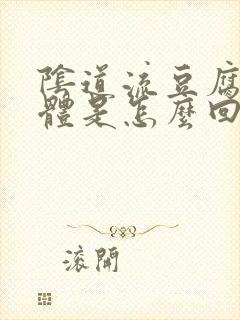 陰道流豆腐
體是怎麼回
滾開